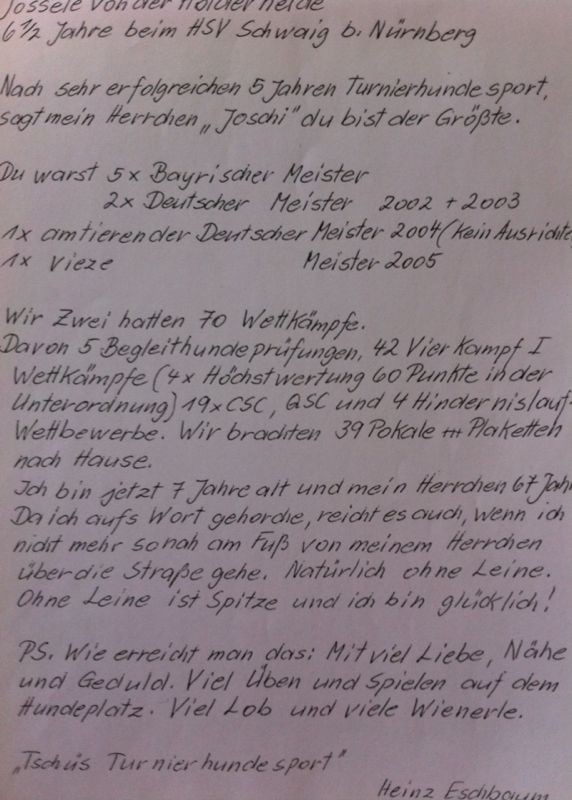 Jossele von der Holderheide
6 1/2 Jahre beim HSV Schwaig b. Nürnberg
Nach sehr erfolgreichen 5 Jahren Turnierhundesport,
sagt mein Herrchen „Joschi" du bist der Größte.
Du warst 5x Bayrischer Meister
2x Deutscher Meister 2002 + 2003
1x amtierender Deutscher Meister 2004 (kein Ausrichte
1x Vieze Meister 2005
Wir Zwei hatten 70 Wettkämpfe.
Davon 5 Begleithundeprüfungen, 42 Vierkampf I
Wettkämpfe (4x Höchstwertung 60 Punkte in der
Unterordnung) 19x CSC, QSC und 4 Hindernislauf-
Wettbewerbe. Wir brachten 39 Pokale +++ Plaketten
nach Hause.
Ich bin jetzt 7 Jahre alt und mein Herrchen 67 Jahr
Da ich aufs Wort gehorche, reicht es auch, wenn ich
nicht mehr so nah am Fuß von meinem Herrchen
über die Straße gehe. Natürlich ohne Leine.
Ohne Leine ist Spitze und ich bin glücklich!
PS. Wie erreicht man das: Mit viel Liebe, Nähe
und Geduld. Viel Üben und Spielen auf dem
Hundeplatz. Viel Lob und viele Wienerle.
„Tschüs Turnierhundesport"
Heinz Eschbaum